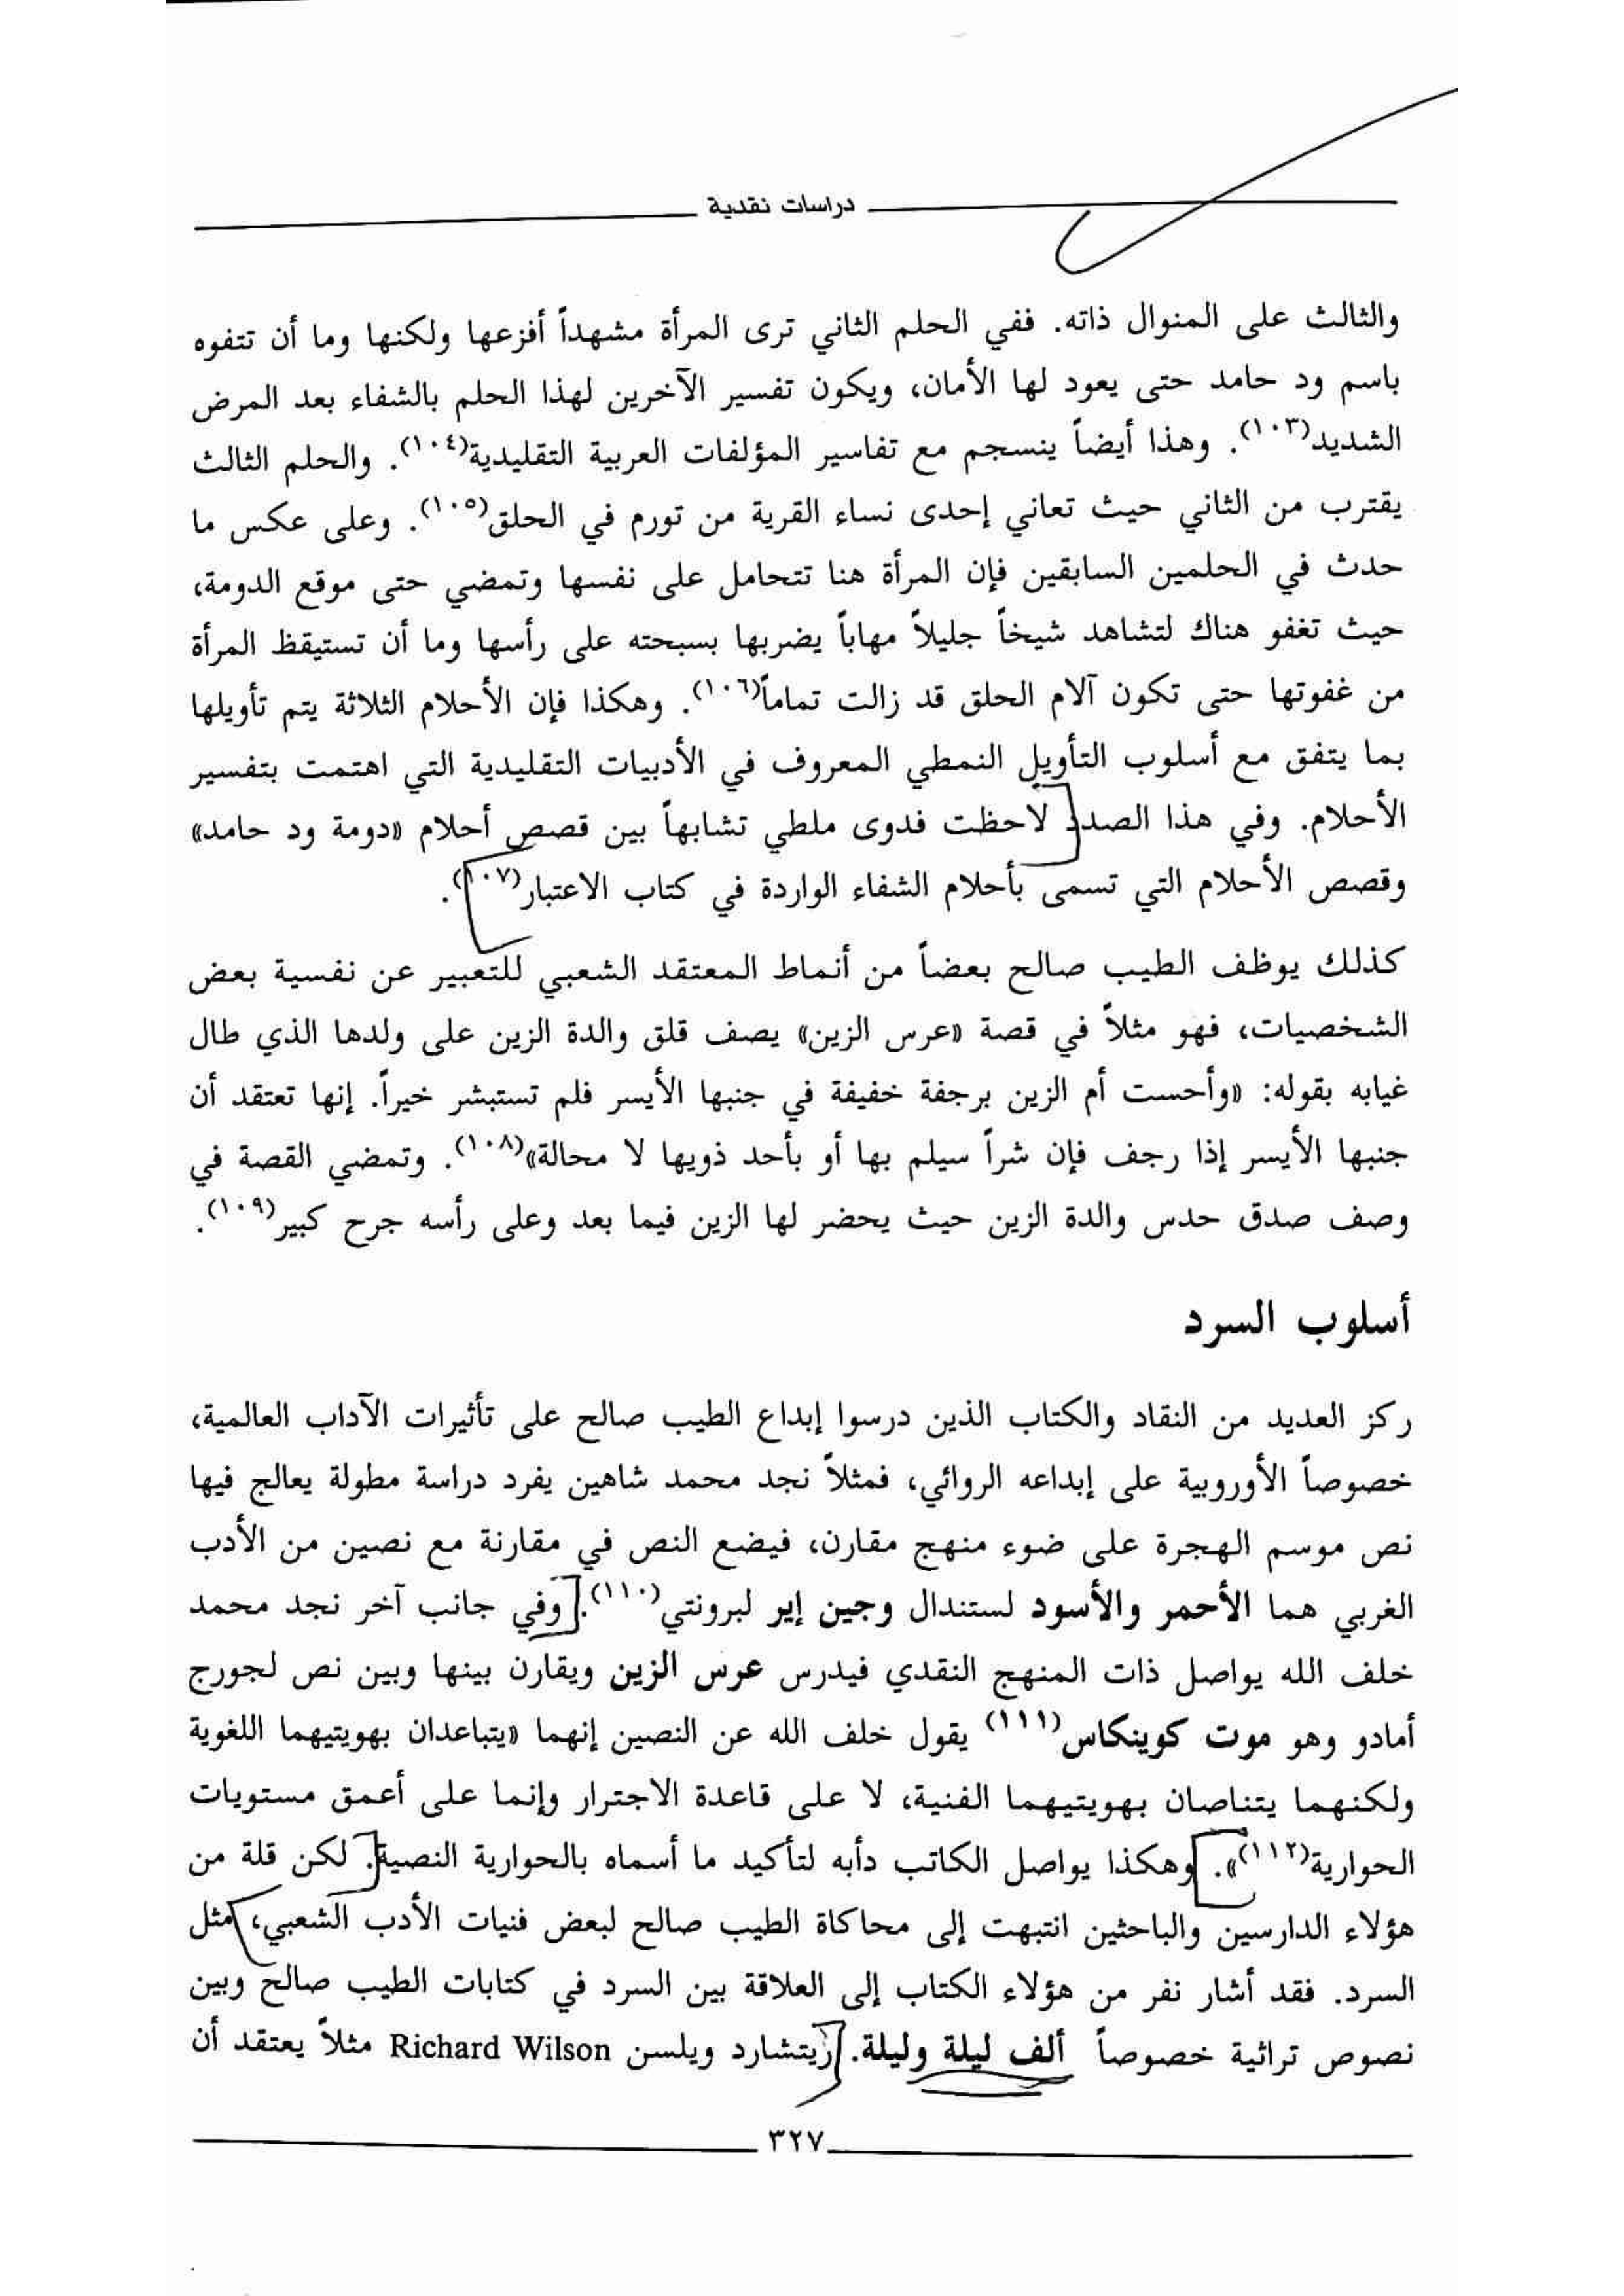 دراسات نقدية
والثالث على المنوال ذاته. ففي الحلم الثاني ترى المرأة مشهداً أفزعها ولكنها وما أن تتفوه
باسم ود حامد حتى يعود لها الأمان، ويكون تفسير الآخرين لهذا الحلم بالشفاء بعد المرض
الشديد(١٠٣). وهذا أيضاً ينسجم مع تفاسير المؤلفات العربية التقليدية(١٠٤). والحلم الثالث
يقترب من الثاني حيث تعاني إحدى نساء القرية من تورم في الحلق(١٠٥). وعلى عكس ما
حدث في الحلمين السابقين فإن المرأة هنا تتحامل على نفسها وتمضي حتى موقع الدومة،
حيث تغفو هناك لتشاهد شيخاً جليلاً مهاباً يضربها بسبحته على رأسها وما أن تستيقظ المرأة
من غفوتها حتى تكون آلام الحلق قد زالت تماماً(١٠٦). وهكذا فإن الأحلام الثلاثة يتم تأويلها
بما يتفق مع أسلوب التأويل النمطي المعروف في الأدبيات التقليدية التي اهتمت بتفسير
الأحلام. وفي هذا الصدد لاحظت فدوى ملطي تشابهاً بين قصص أحلام «دومة ود حامد»
وقصص الأحلام التي تسمى بأحلام الشفاء الواردة في كتاب الاعتبار(١٠٧).
كذلك يوظف الطيب صالح بعضاً من أنماط المعتقد الشعبي للتعبير عن نفسية بعض
الشخصيات، فهو مثلاً في قصة «عرس الزين» يصف قلق والدة الزين على ولدها الذي طال
غيابه بقوله: «وأحست أم الزين برجفة خفيفة في جنبها الأيسر فلم تستبشر خيراً. إنها تعتقد أن
جنبها الأيسر إذا رجف فإن شراً سيلم بها أو بأحد ذويها لا محالة»(١٠٨). وتمضي القصة في
وصف صدق حدس والدة الزين حيث يحضر لها الزين فيما بعد وعلى رأسه جرح كبير(١٠٩).
أسلوب السرد
ركز العديد من النقاد والكتاب الذين درسوا إبداع الطيب صالح على تأثيرات الآداب العالمية،
خصوصاً الأوروبية على إبداعه الروائي، فمثلاً نجد محمد شاهين يفرد دراسة مطولة يعالج فيها
نص موسم الهجرة على ضوء منهج مقارن، فيضع النص في مقارنة مع نصين من الأدب
الغربي هما الأحمر والأسود لستندال وجين إير لبرونتي(١١٠). وفي جانب آخر نجد محمد
خلف الله يواصل ذات المنهج النقدي فيدرس عرس الزين ويقارن بينها وبين نص لجورج
أمادو وهو موت كوينكاس(١١١) يقول خلف الله عن النصين إنهما «يتباعدان بهويتيهما اللغوية
ولكنهما يتناصان بهويتيهما الفنية، لا على قاعدة الاجترار وإنما على أعمق مستويات
الحوارية(١١٢)». وهكذا يواصل الكاتب دأبه لتأكيد ما أسماه بالحوارية النصية. لكن قلة من
هؤلاء الدارسين والباحثين انتبهت إلى محاكاة الطيب صالح لبعض فنيات الأدب الشعبي، مثل
السرد. فقد أشار نفر من هؤلاء الكتاب إلى العلاقة بين السرد في كتابات الطيب صالح وبين
نصوص تراثية خصوصاً ألف ليلة وليلة. ريتشارد ويلسن Richard Wilson مثلاً يعتقد أن
٣٢٧